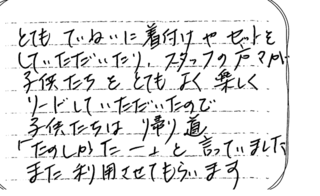 とても ていねいに着付けや セットを
していただいたり、スタッフの方々が
子供たちを とても よく 楽しく
リードしていただいたので
子供たちは 帰り道
「たのしかったー」と言っていました
また利用させてもらいます